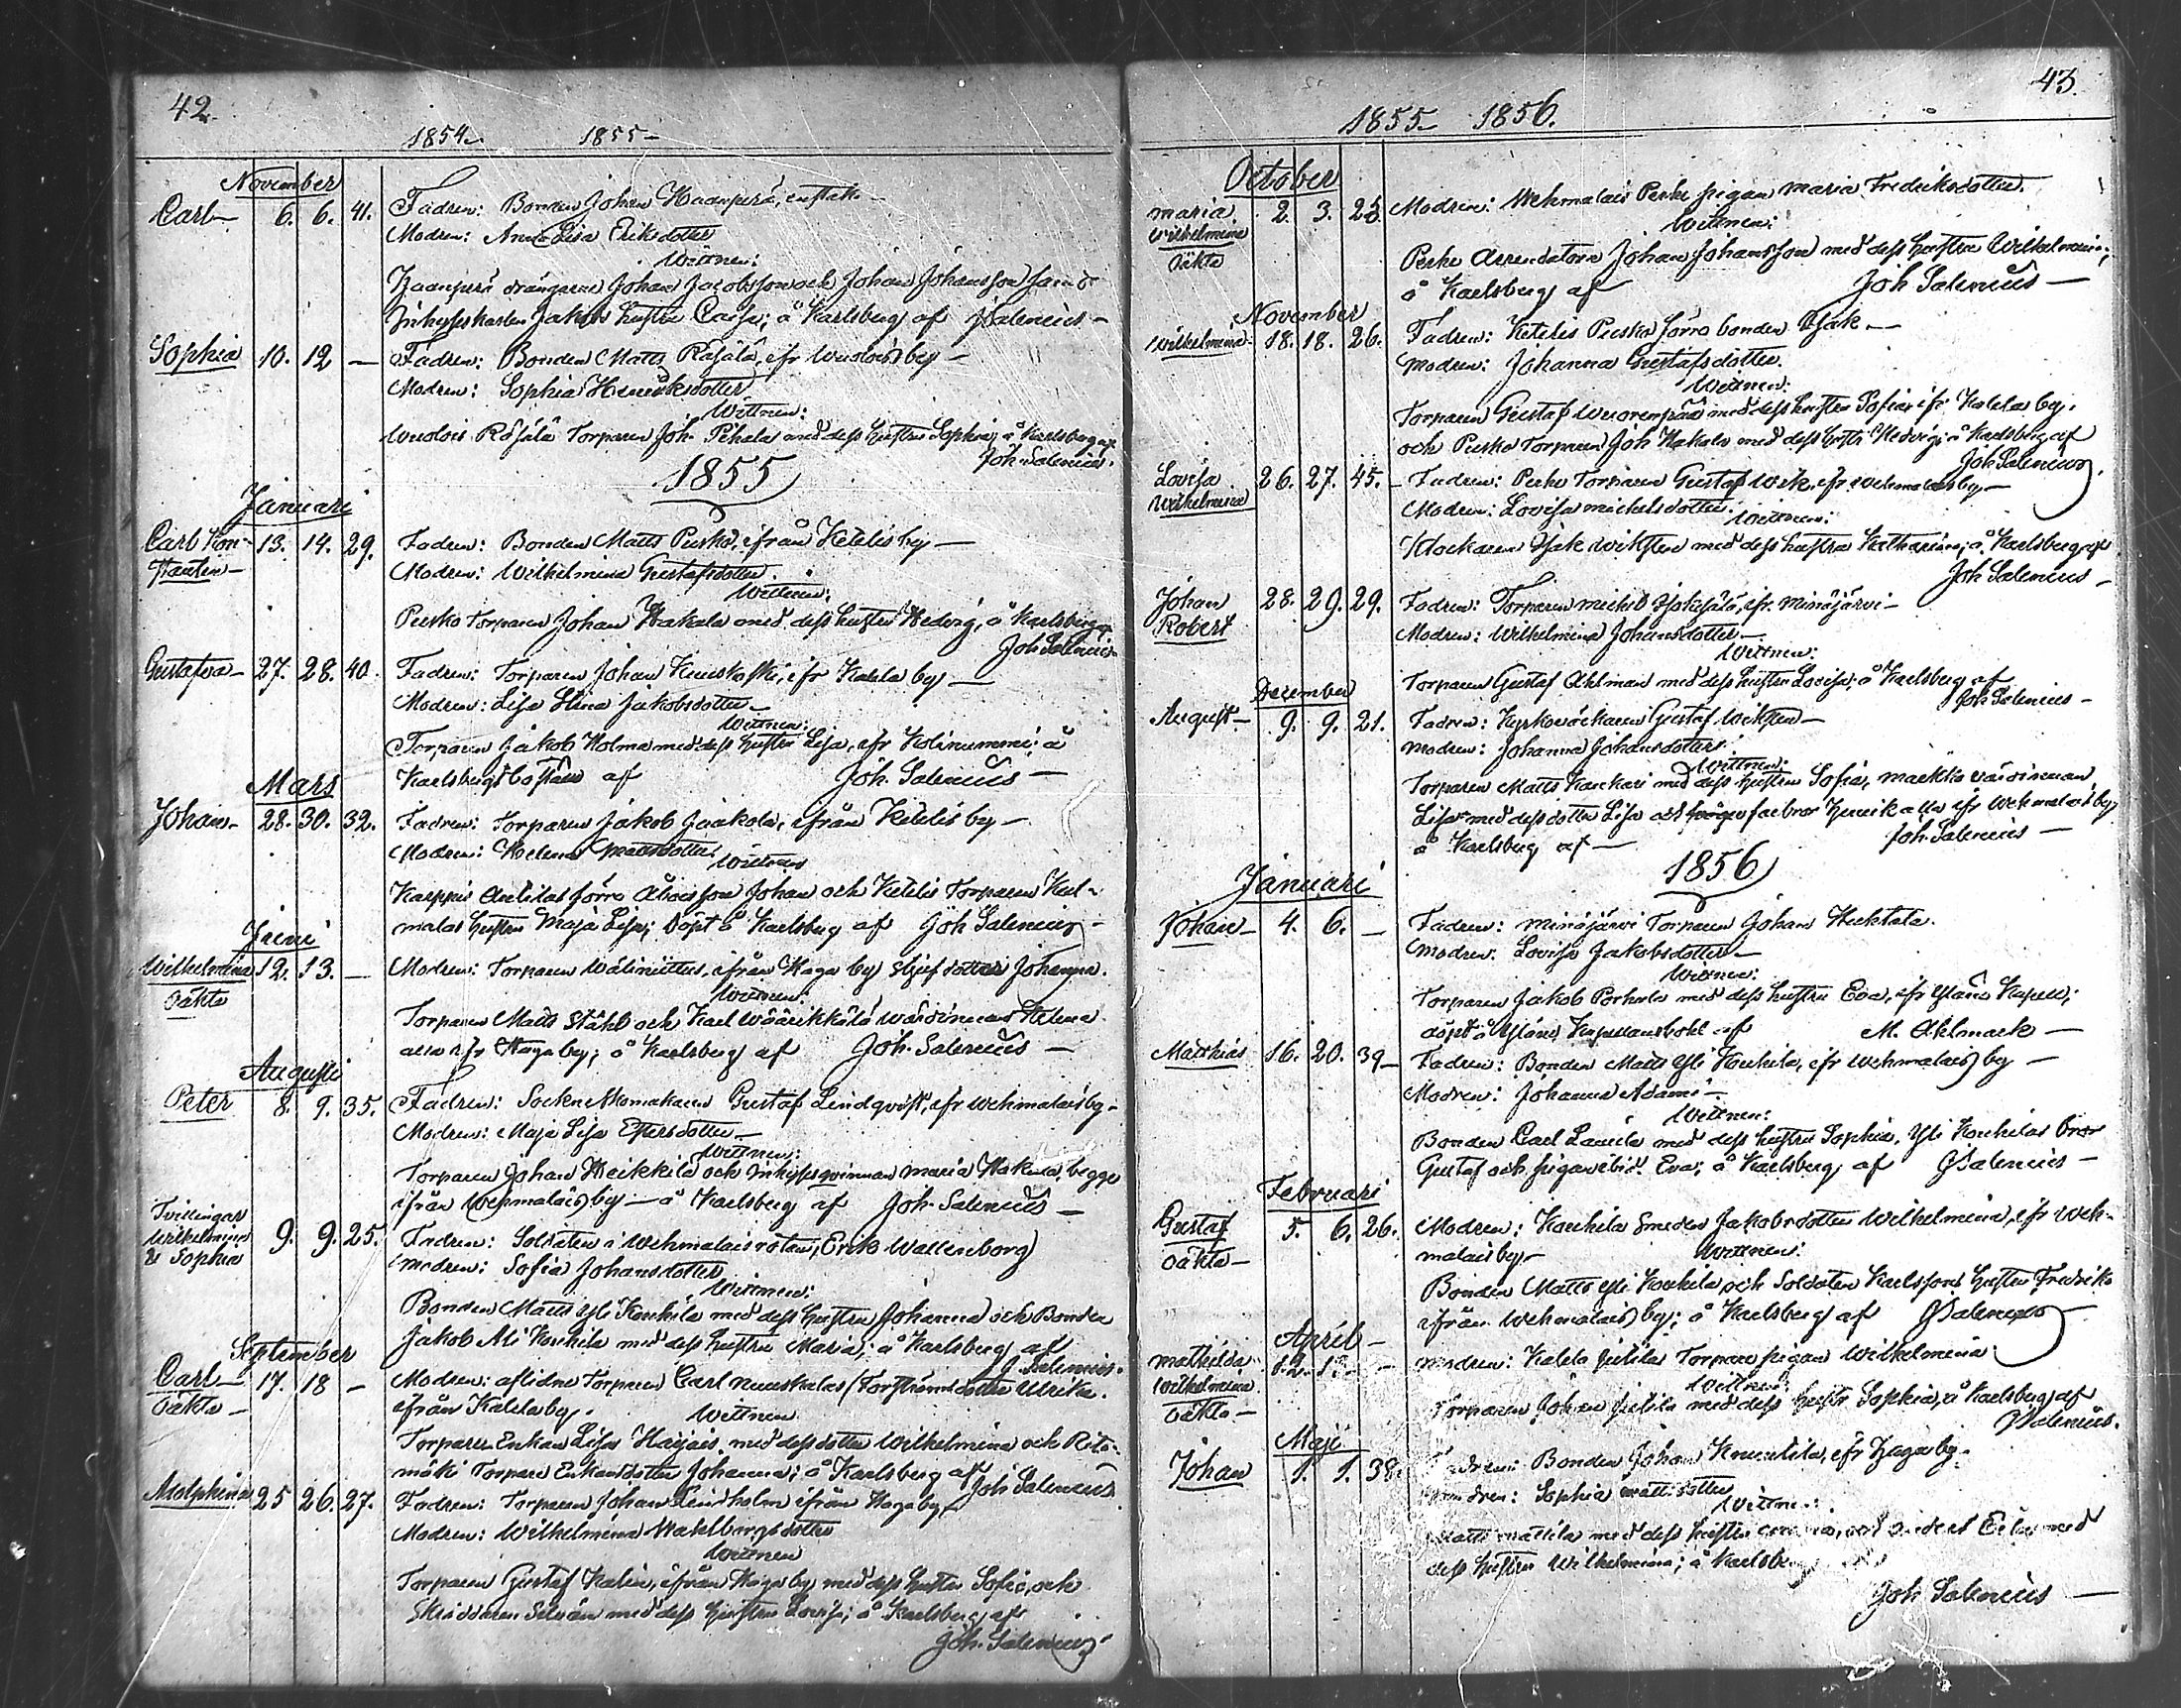 42.
1854. 1855-
November
Carl- 6. 6. 41. Fadren: Bonden Johan
Modren: Anna Lisa Eriksdotter
Wittnen:
drängarne Johan Jacobsson och Johan Johansson samt
Jakobs hustru Caisa; å Karlsberg af JSalenius-
Sophia 10. 12 - Fadren: Bonden Matts ifr by-
Modren: Sophia Henriksdotter
Wittnen:
Torparen Joh. Pihala med dess hustru Sophia; å Karlsberg af
Joh Salenius.
1855
Januari
Carl Kon- 13. 14. 29. Fadren: Bonden Matts Pusko, ifrån Ketelis by-
stantin- Modren: Wilhelmina Gustafsdotter.
Wittnen:
Pusko Torparen Johan Hakala med dess hustru Hedvig, å Karlsberg af
Joh Salenius
Gustafva- 27. 28. 40. Fadren: Torparen Johan ifr Kalela by-
Modren: Lisa Stina Jakobsdotter-
Wittnen:
Torparen Jakob Holma med dess hustru Lisa, ifr Kolinummi; å
Karlsbergs af Joh. Salenius-
Mars
Johan- 28. 30. 32. Fadren: Torparen Jakob Jaakola, ifrån Ketelis by-
Modren: Helena Mattsdotter
Wittnen
Karppis Anttilas förra Åboes son Johan och Ketelis Torparen
malas hustru Maja Lisa; Döpt å Karlsberg af Joh Salenius-
Juni
Wilhelmina 12. 13. - Modren: Torparen ifrån Haga by styfdotter Johanna.
Oäkta Wittnen:
Torparen Matts Ståhl och Karl värdinnan Helena
alla ifr Haga by; å Karlsberg af Joh. Salenius-
Augusti
Peter 8. 9. 35. Fadren: Sockneskomakaren Gustaf Lindqvist, ifr Wehmalais by-
Modren: Maja Lisa
Wittnen:
Torparen Johan Heikkilä och Inhyses qvinnan Maria Hakala, begge
ifrån Wehmalais by- å Karlsberg af Joh. Salenius-
Tvillingar
Wilhelmina 9. 9. 25. Fadren: Soldaten i Wehmalais rotan, Erik Wallenborg
& Sophia Modren: Sofia Johansdotter
Wittnen:
Bonden Matts Yli Koukila med dess hustru Johanna och Bonden
Jakob Ali Koukila med dess hustru Maria; å Karlsberg af
J Salenius.
September
Carl- 17. 18 - Modren: aflidne Torparen Carl dotter Ulrika.
Oäkta- ifrån Kalela by. Wittnen
Torpare Enkan Lisa med dess dotter Wilhelmina och
mäki Torpare Enkans dotter Johanna; å Karlsberg af Joh Salenius
Adolphina 25 26. 27. Fadren: Torparen Johan Lindholm ifrån Haga by
Modren: Wilhelmina Wahlbergsdotter
Wittnen
Torparen Gustaf Kalin, ifrån Haga by med dess hustru Sofia, och
Skräddaren med dess hustru Lovisa; å Karlsberg af
Joh. Salenius
43.
1855- 1856.
October
Maria 2. 3. Modren: Wehmalais Perho pigan Maria Fredriksdotter.
Wilhelmina Wittnen:
Oäkta Perho Arrendatorn Johan Johansson med dess hustru Wilhelmina;
å Karlsberg af Joh Salenius-
November
Wilhelmina- 18. 18. 26. Fadren: Ketelis Pusko förra bonden Isak-
Modren: Johanna Gustafsdotter.
Wittnen:
Torparen Gustaf Wuorenpää med dess hustru Sofia, ifr Kalela by.
och Pusko Torparen Joh Hakala med dess hustru Hedvig; å Karlsberg af
Joh Salenius.
Lovisa 26. 27. 45. Fadren: Perho Torparen Gustaf Wirk, ifr Wehmalais by-
Wilhelmina Modren: Lovisa Michelsdotter.
Wittnen:
Klockaren Isak Wiksten med dess hustru Katharina; å Karlsberg af
Joh Salenius-
Johan 28. 29. 29. Fadren: Torparen Michel ifr. Minäjärvi-
Robert Modren: Wilhelmina Johansdotter-
Wittnen:
Torparen Gustaf Ahlman med dess hustru Lovisa; å Karlsberg af
Joh Salenius-
December
August- 9. 9. 21. Fadren: Kyrkoväktaren Gustaf Wiksten-
Modren: Johanna Johansdotter
Wittnen:
Torparen Matts Kankari med dess hustru Sofia, värdinnan
Lisa med dess dotter Lisa och farbror Henrik alla ifr Wehmalais by
å Karlsberg af- Joh. Salenius-
1856
Januari
Johan- 4. 6. - Fadren: Minäjärvi Torparen Johan Huhtala.
Modren: Lovisa Jakobsdotter-
Wittnen:
Torparen Jakob Porhola med dess hustru Eva, ifr Yläne Kapell;
döpt å Yläne af M. Ahlmark-
Matthias 16. 20. 39- Fadren: Bonden Matts Yli Koukila, ifr Wehmalais by-
Modren: Johanna Adami-
Wittnen:
Bonden Carl Laurila med dess hustru Sophia, Yli Koukilas bror
Gustaf och pigan ibid. Eva; å Karlsberg af JSalenius-
Februari
Gustaf 5. 6. 26. Modren: Koukila Smeden Jakobs dotter Wilhelmina, ifr Weh-
Oäkta- malais by.- Wittnen:
Bonden Matts Yli Koukila och Soldaten Karlssons hustru Fredrika
ifrån Wehmalais by; å Karlsberg af JSalenius
April-
Mathilda 12. Modren: Kalela Torpare pigan Wilhelmina
Wilhelmina Wittnen:
Oäkta- Torparen Johan med dess hustru Sophia, å Karlsberg af
JSalenius.
Maji
Johan 1. 1. 38. Fadren: Bonden Johan ifr Haga by-
Modren: Sophia Mattsdotter
Wittnen:
Matts Mattila med dess hustru med
dess hustru Wilhelmina; å Karlsberg
Joh Salenius-